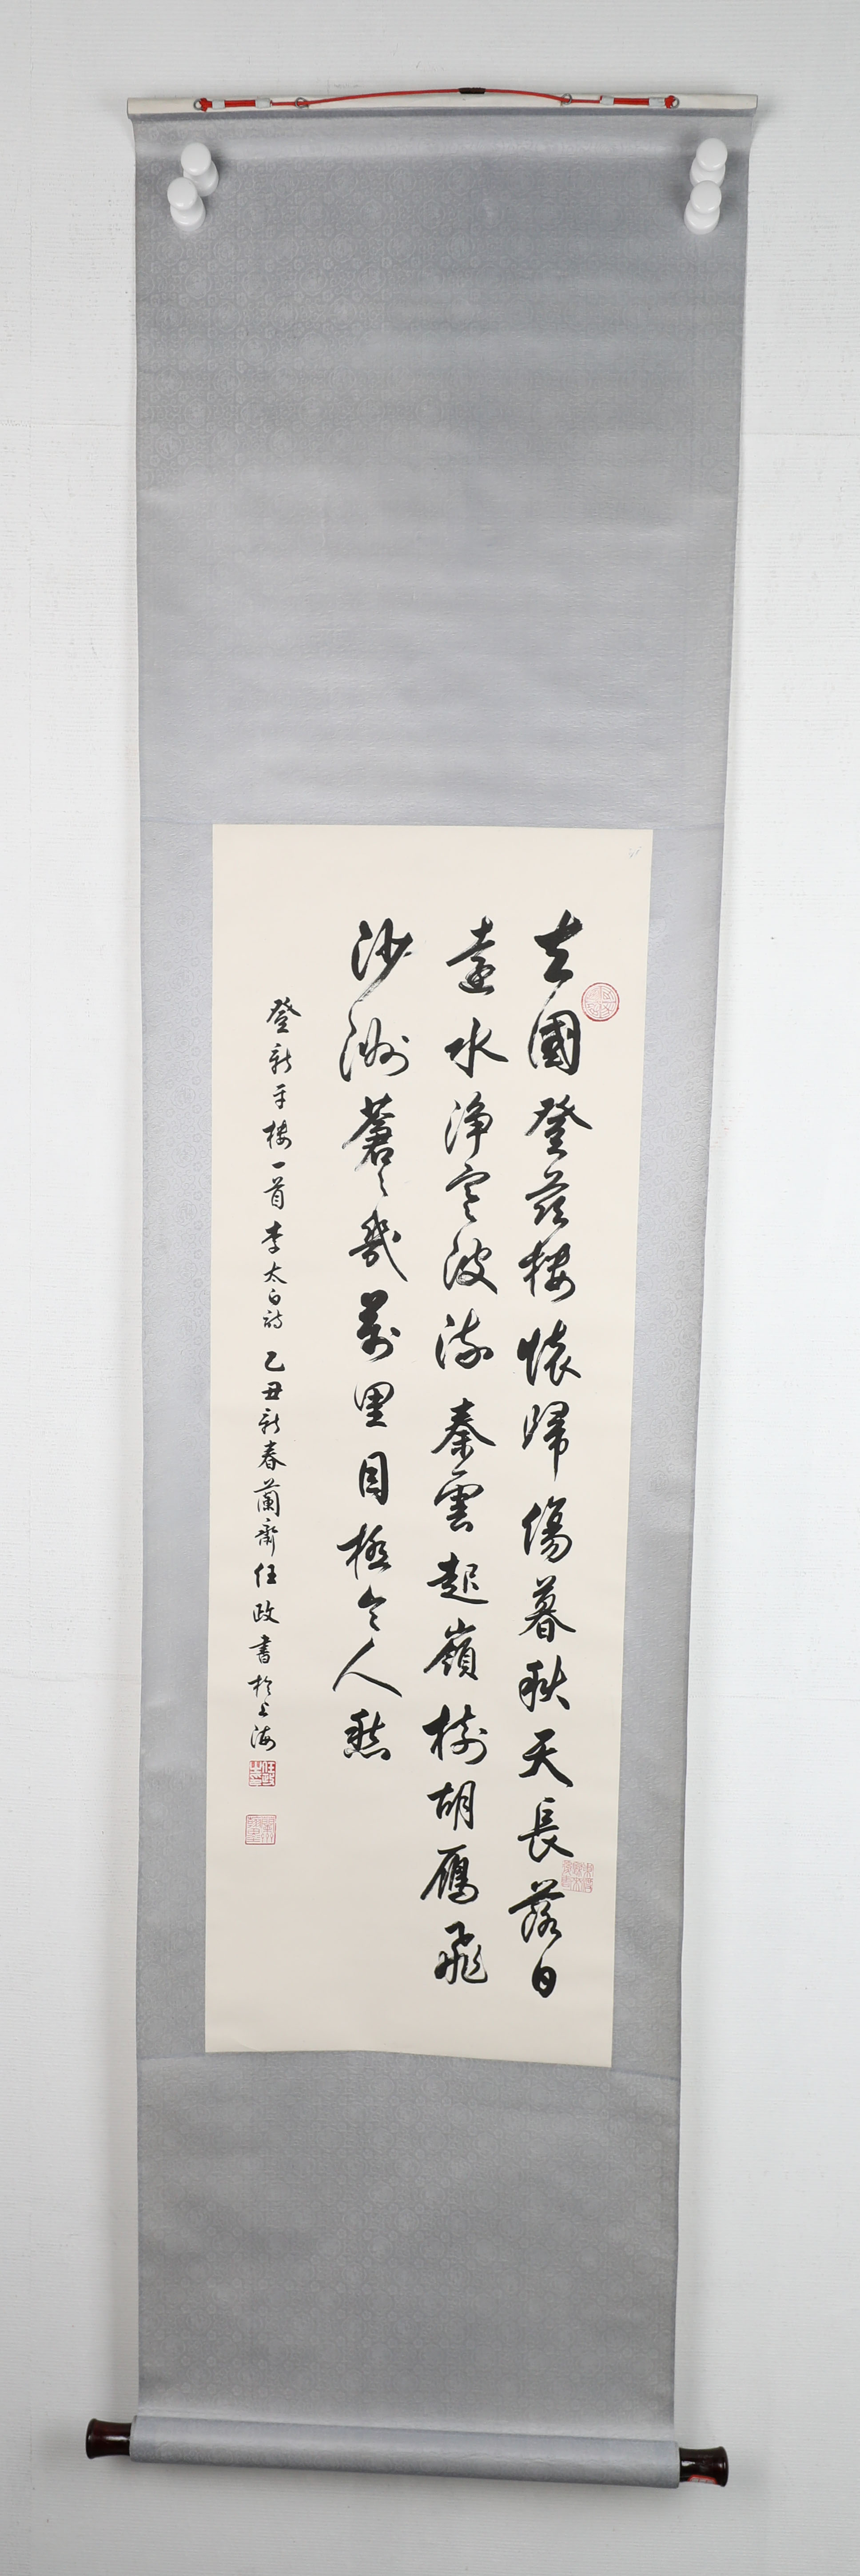 去國登茲樓懷歸傷暮秋天長落日
遠水淨寒波流秦雲起嶺樹胡雁飛
沙洲蒼々幾萬里目極令人愁
登新平樓一首李太白詩乙丑新春蘭齋任政書於上海